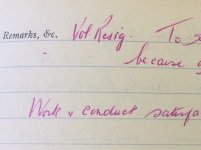 Remarks, &c. Vol Resig. To
because
Work & conduct